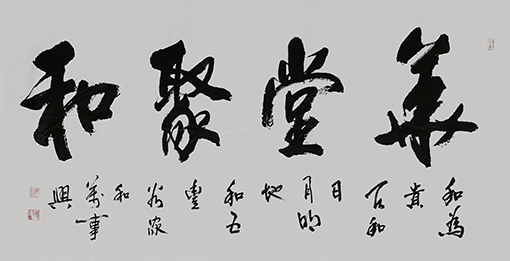 華堂聚和
和為
貴
天和
日
月明
地
和五
豐
谷家
和
萬事
興